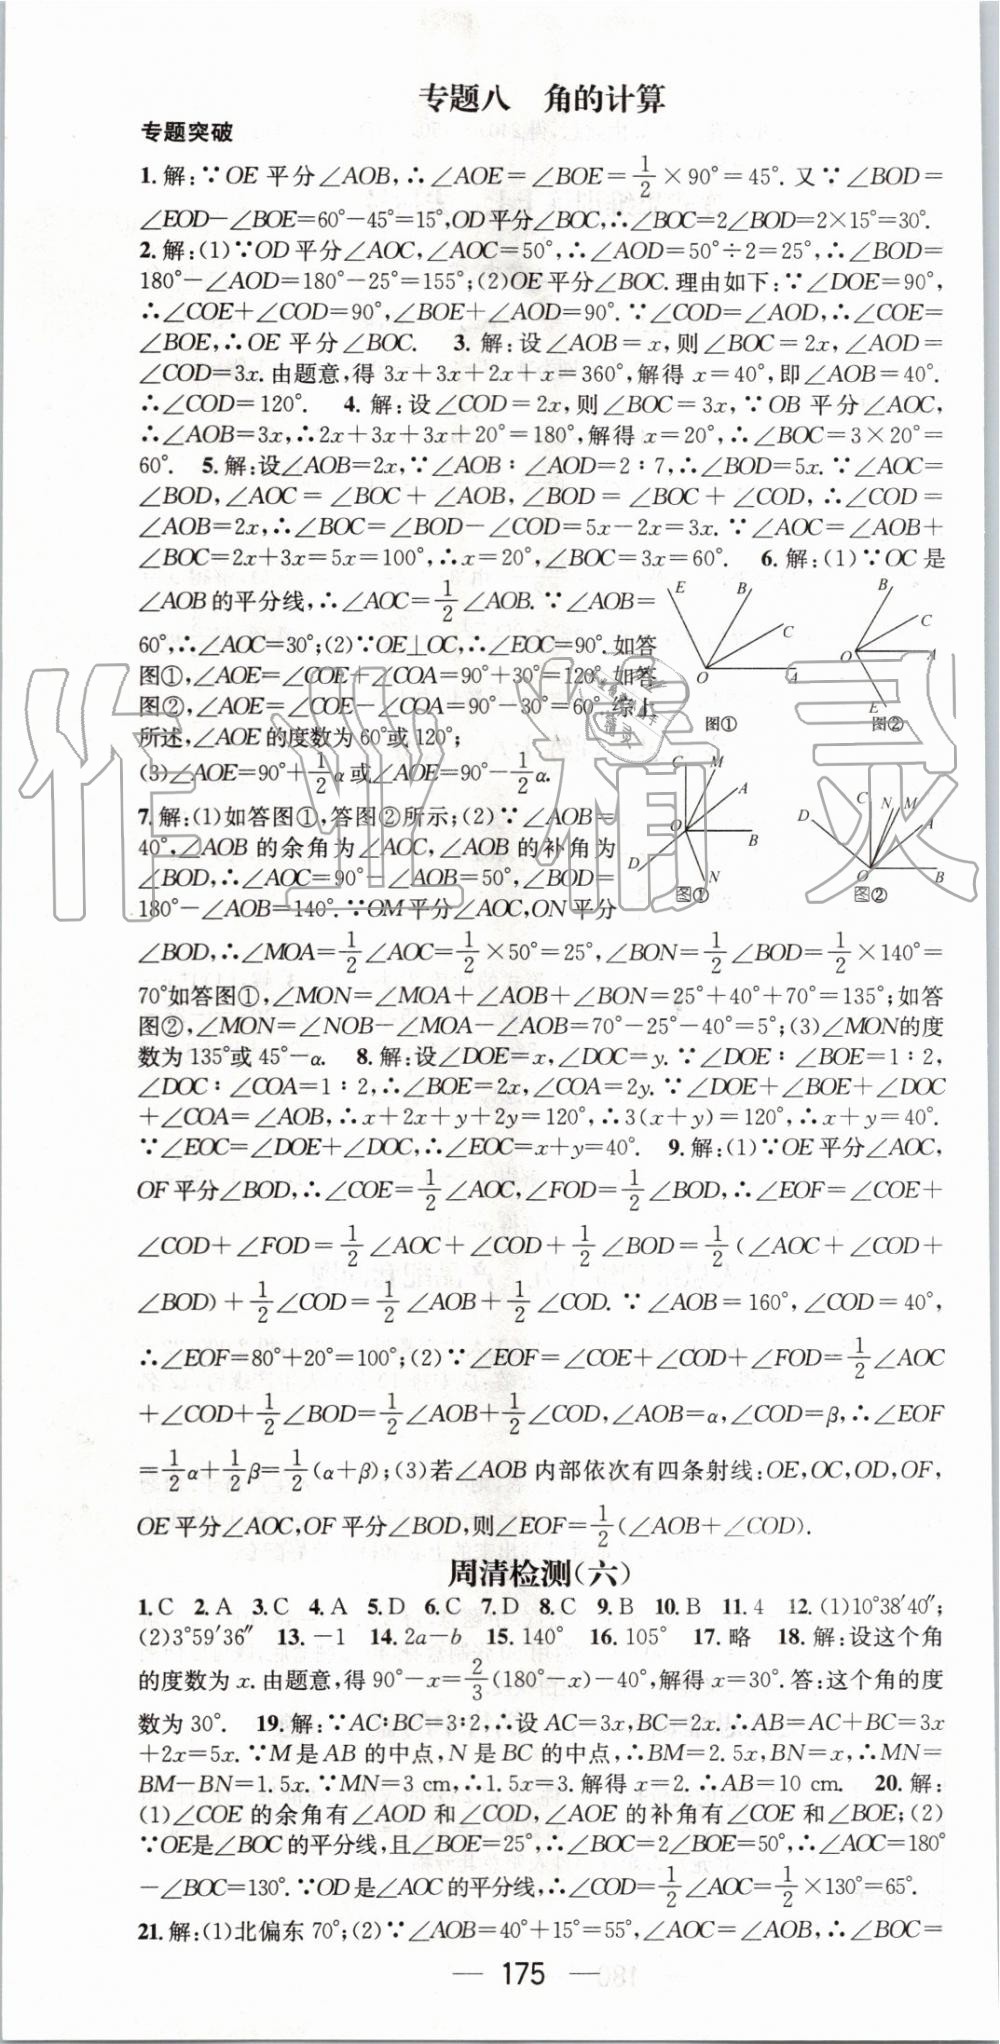 专题八　角的计算
专题突破
1.解:∵OE 平分∠AOB,∴∠AOE=∠BOE=1/2×90°=45°.又∵∠BOD=
∠EOD-∠BOE=60°-45°=15°,OD平分∠BOC,∴∠BOC=2∠BOD=2×15°=30°.
2.解:(1)∵OD 平分∠AOC,∠AOC=50°,∴∠AOD=50°÷2=25°,∴∠BOD=
180°-∠AOD=180°-25°=155°;(2)OE平分∠BOC.理由如下:∵∠DOE=90°,
∴∠COE+∠COD=90°,∠BOE+∠AOD=90°.∵∠COD=∠AOD,∴∠COE=
∠BOE,∴OE 平分∠BOC.　3.解:设∠AOB=x,则∠BOC=2x,∠AOD=
∠COD=3x.由题意,得 3x+3x+2x+x=360°,解得 x=40°,即∠AOB=40°.
∴∠COD=120°.　4.解:设∠COD=2x,则∠BOC=3x,∵OB 平分∠AOC,
∴∠AOB=3x,∴2x+3x+3x+20°=180°,解得 x=20°,∴∠BOC=3×20°=
60°.　5.解:设∠AOB=2x,∵∠AOB∶∠AOD=2∶7,∴∠BOD=5x.∵∠AOC=
∠BOD,∠AOC=∠BOC+∠AOB,∠BOD=∠BOC+∠COD,∴∠COD=
∠AOB=2x,∴∠BOC=∠BOD-∠COD=5x-2x=3x.∵∠AOC=∠AOB+
∠BOC=2x+3x=5x=100°,∴x=20°,∠BOC=3x=60°.　6.解:(1)∵OC是
∠AOB的平分线,∴∠AOC=1/2∠AOB.∵∠AOB=
60°,∴∠AOC=30°;(2)∵OE⊥OC,∴∠EOC=90°.如答
图①,∠AOE=∠COE+∠COA=90°+30°=120°.如答
图②,∠AOE=∠COE-∠COA=90°-30°=60°.综上
所述,∠AOE的度数为60°或120°;
(3)∠AOE=90°+1/2α或∠AOE=90°-1/2α.
E B C O A
图①
B C O A E
图②
7.解:(1)如答图①,答图②所示;(2)∵∠AOB=
40°,∠AOB 的余角为∠AOC,∠AOB的补角为
∠BOD,∴∠AOC=90°-∠AOB=50°,∠BOD=
180°-∠AOB=140°.∵OM平分∠AOC,ON平分
C M A O B D N
图①
D C N M A O B
图②
∠BOD,∴∠MOA=1/2∠AOC=1/2×50°=25°,∠BON=1/2∠BOD=1/2×140°=
70°如答图①,∠MON=∠MOA+∠AOB+∠BON=25°+40°+70°=135°;如答
图②,∠MON=∠NOB-∠MOA-∠AOB=70°-25°-40°=5°;(3)∠MON的度
数为135°或45°-α.　8.解:设∠DOE=x,∠DOC=y.∵∠DOE∶∠BOE=1∶2,
∠DOC∶∠COA=1∶2,∴∠BOE=2x,∠COA=2y.∵∠DOE+∠BOE+∠DOC
+∠COA=∠AOB,∴x+2x+y+2y=120°,∴3(x+y)=120°,∴x+y=40°.
∵∠EOC=∠DOE+∠DOC,∴∠EOC=x+y=40°.　9.解:(1)∵OE平分∠AOC,
OF平分∠BOD,∴∠COE=1/2∠AOC,∠FOD=1/2∠BOD,∴∠EOF=∠COE+
∠COD+∠FOD=1/2∠AOC+∠COD+1/2∠BOD=1/2(∠AOC+∠COD+
∠BOD)+1/2∠COD=1/2∠AOB+1/2∠COD.∵∠AOB=160°,∠COD=40°,
∴∠EOF=80°+20°=100°;(2)∵∠EOF=∠COE+∠COD+∠FOD=1/2∠AOC
+∠COD+1/2∠BOD=1/2∠AOB+1/2∠COD,∠AOB=α,∠COD=β,∴∠EOF
=1/2α+1/2β=1/2(α+β);(3)若∠AOB内部依次有四条射线:OE,OC,OD,OF,
OE平分∠AOC,OF平分∠BOD,则∠EOF=1/2(∠AOB+∠COD).
周清检测(六)
1.C　2.A　3.C　4.A　5.D　6.C　7.D　8.C　9.B　10.B　11.4　12.(1)10°38′40″;
(2)3°59′36″　13.-1　14.2a-b　15.140°　16.105°　17.略　18.解:设这个角
的度数为 x.由题意,得 90°-x=2/3(180°-x)-40°,解得 x=30°.答:这个角的度
数为30°.　19.解:∵AC∶BC=3∶2,∴设 AC=3x,BC=2x.∴AB=AC+BC=3x
+2x=5x.∵M 是 AB 的中点,N 是 BC 的中点,∴BM=2.5x,BN=x,∴MN=
BM-BN=1.5x.∵MN=3 cm,∴1.5x=3.解得 x=2.∴AB=10 cm.　20.解:
(1)∠COE 的余角有∠AOD 和∠COD,∠AOE 的补角有∠COE 和∠BOE;(2)
∵OE是∠BOC的平分线,且∠BOE=25°,∴∠BOC=2∠BOE=50°,∴∠AOC=180°
-∠BOC=130°.∵OD是∠AOC的平分线,∴∠COD=1/2∠AOC=1/2×130°=65°.
21.解:(1)北偏东 70°;(2)∵∠AOB=40°+15°=55°,∠AOC=∠AOB,∴∠BOC=
— 175 —
作业精灵